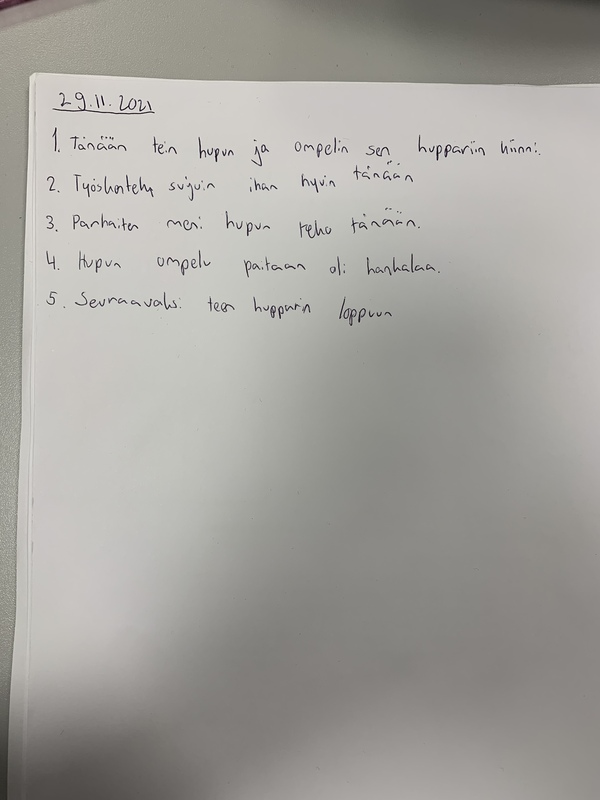 29.11.2021
1. Tänään tein hupun ja ompelin sen huppariin kiinni.
2. Työskentely sujuin ihan hyvin tänään
3. Parhaiten meni hupun teko tänään.
4. Hupun ompelu paitaan oli hankalaa.
5. Seuraavaksi teen hupparin loppuun